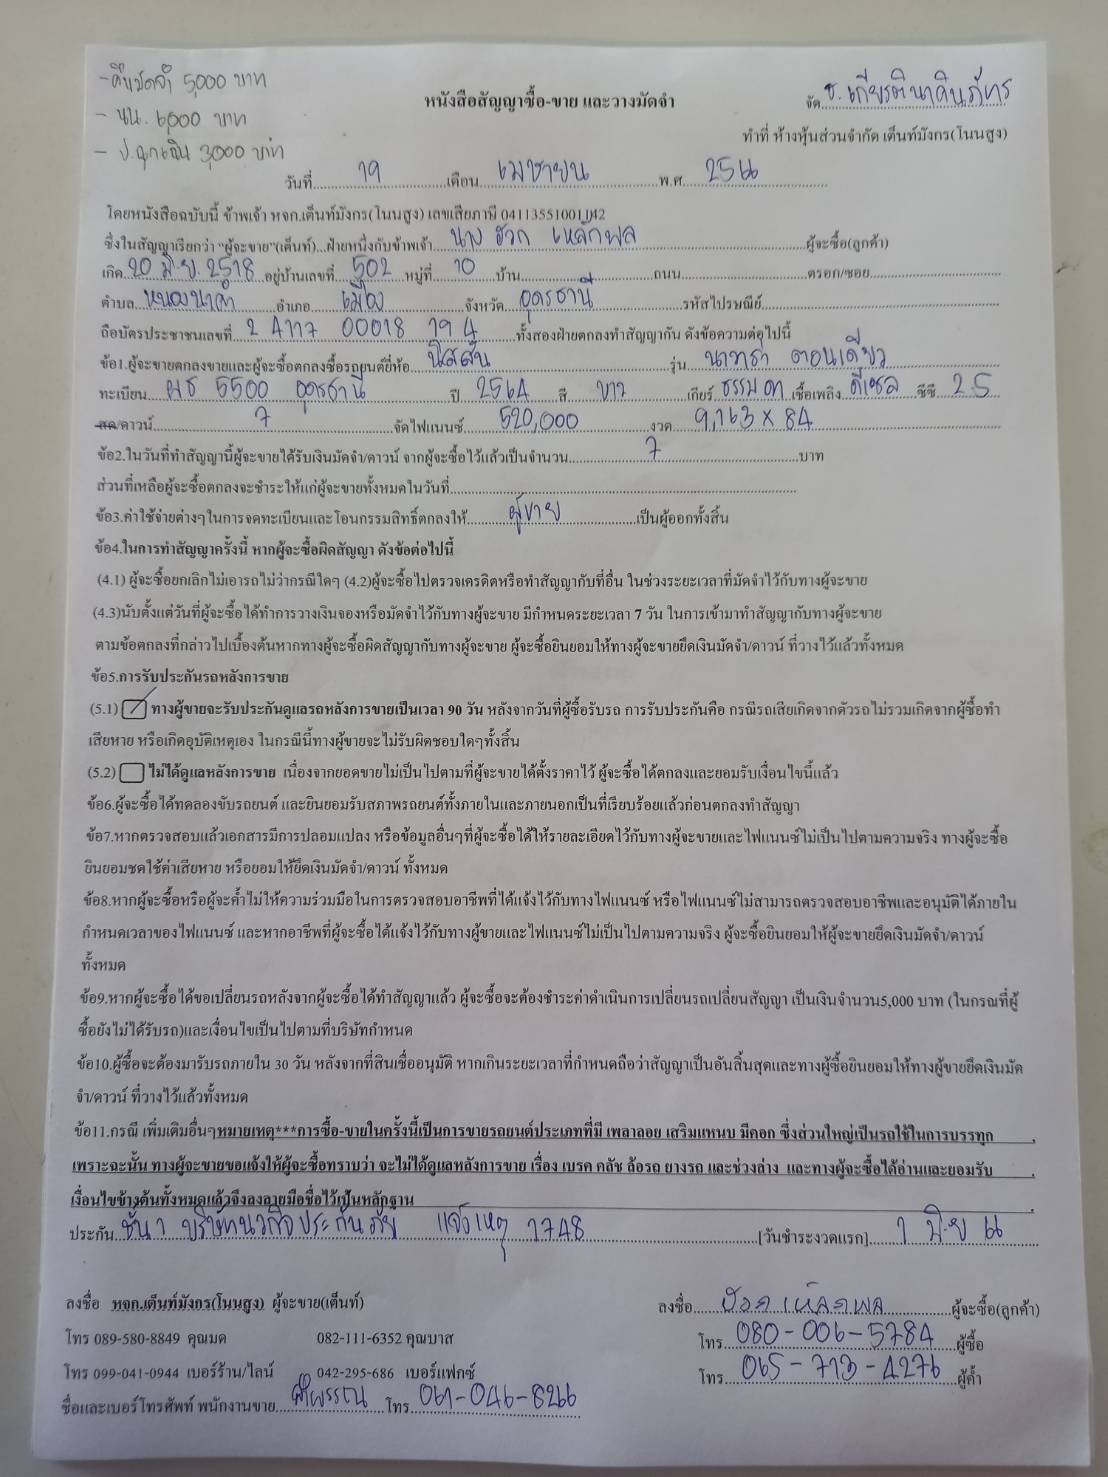 -คืนมัดจำ 5,000 บาท
- นน. 6,000 บาท
- ป.ฉุกเฉิน 3,000 บาท
หนังสือสัญญาซื้อ-ขาย และวางมัดจำ
จัด. ธ.เกียรตินาคินภัทร
ทำที่ ห้างหุ้นส่วนจำกัด เต็นท์มังกร(โนนสูง)
วันที่ 19 เดือน เมษายน พ.ศ. 2566
โดยหนังสือฉบับนี้ ข้าพเจ้า หจก.เต็นท์มังกร(โนนสูง) เลขเสียภาษี 04113551001142
ซึ่งในสัญญาเรียกว่า "ผู้จะขาย"(เต็นท์)...ฝ่ายหนึ่งกับข้าพเจ้า นาง ฮวก เหล็กพล ผู้จะซื้อ(ลูกค้า)
เกิด 20 มิ.ย. 2518 อยู่บ้านเลขที่ 502 หมู่ที่ 10 บ้าน ถนน ตรอก/ซอย
ตำบล หนองนาคำ อำเภอ เมือง จังหวัด อุดรธานี รหัสไปรษณีย์
ถือบัตรประชาชนเลขที่ 2 4117 00018 19 4 ทั้งสองฝ่ายตกลงทำสัญญากัน ดังข้อความต่อไปนี้
ข้อ1.ผู้จะขายตกลงขายและผู้จะซื้อตกลงซื้อรถยนต์ยี่ห้อ นิสสัน รุ่น นาวาร่า ตอนเดียว
ทะเบียน ผธ 5500 อุดรธานี ปี 2564 สี ขาว เกียร์ ธรรมดา เชื้อเพลิง ดีเซล ซีซี 2.5
สด/ดาวน์ 7 จัดไฟแนนซ์ 520,000 งวด 9,163 x 84
ข้อ2.ในวันที่ทำสัญญานี้ผู้จะขายได้รับเงินมัดจำ/ดาวน์ จากผู้จะซื้อไว้แล้วเป็นจำนวน 7 บาท
ส่วนที่เหลือผู้จะซื้อตกลงจะชำระให้แก่ผู้จะขายทั้งหมดในวันที่
ข้อ3.ค่าใช้จ่ายต่างๆในการจดทะเบียนและโอนกรรมสิทธิ์ตกลงให้ ผู้ขาย เป็นผู้ออกทั้งสิ้น
ข้อ4.ในการทำสัญญาครั้งนี้ หากผู้จะซื้อผิดสัญญา ดังข้อต่อไปนี้
(4.1) ผู้จะซื้อยกเลิกไม่เอารถไม่ว่ากรณีใดๆ (4.2)ผู้จะซื้อไปตรวจเครดิตหรือทำสัญญากับที่อื่น ในช่วงระยะเวลาที่มัดจำไว้กับทางผู้จะขาย
(4.3)นับตั้งแต่วันที่ผู้จะซื้อได้ทำการวางเงินจองหรือมัดจำไว้กับทางผู้จะขาย มีกำหนดระยะเวลา 7 วัน ในการเข้ามาทำสัญญากับทางผู้จะขาย
ตามข้อตกลงที่กล่าวไปเบื้องต้นหากทางผู้จะซื้อผิดสัญญากับทางผู้จะขาย ผู้จะซื้อยินยอมให้ทางผู้จะขายยึดเงินมัดจำ/ดาวน์ ที่วางไว้แล้วทั้งหมด
ข้อ5.การรับประกันรถหลังการขาย
(5.1) ทางผู้ขายจะรับประกันดูแลรถหลังการขายเป็นเวลา 90 วัน หลังจากวันที่ผู้ซื้อรับรถ การรับประกันคือ กรณีรถเสียเกิดจากตัวรถ ไม่รวมเกิดจากผู้ซื้อทำ
เสียหาย หรือเกิดอุบัติเหตุเอง ในกรณีนี้ทางผู้ขายจะไม่รับผิดชอบใดๆทั้งสิ้น
(5.2) ไม่ได้ดูแลหลังการขาย เนื่องจากยอดขายไม่เป็นไปตามที่ผู้จะขายได้ตั้งราคาไว้ ผู้จะซื้อได้ตกลงและยอมรับเงื่อนไขนี้แล้ว
ข้อ6.ผู้จะซื้อได้ทดลองขับรถยนต์ และยินยอมรับสภาพรถยนต์ทั้งภายในและภายนอกเป็นที่เรียบร้อยแล้วก่อนตกลงทำสัญญา
ข้อ7.หากตรวจสอบแล้วเอกสารมีการปลอมแปลง หรือข้อมูลอื่นๆที่ผู้จะซื้อได้ให้รายละเอียดไว้กับทางผู้จะขายและไฟแนนซ์ไม่เป็นไปตามความจริง ทางผู้จะซื้อ
ยินยอมชดใช้ค่าเสียหาย หรือยอมให้ยึดเงินมัดจำ/ดาวน์ ทั้งหมด
ข้อ8.หากผู้จะซื้อหรือผู้จะค้ำไม่ให้ความร่วมมือในการตรวจสอบอาชีพที่ได้แจ้งไว้กับทางไฟแนนซ์ หรือไฟแนนซ์ไม่สามารถตรวจสอบอาชีพและอนุมัติได้ภายใน
กำหนดเวลาของไฟแนนซ์ และหากอาชีพที่ผู้จะซื้อได้แจ้งไว้กับทางผู้ขายและไฟแนนซ์ไม่เป็นไปตามความจริง ผู้จะซื้อยินยอมให้ผู้จะขายยึดเงินมัดจำ/ดาวน์
ทั้งหมด
ข้อ9.หากผู้จะซื้อได้ขอเปลี่ยนรถหลังจากผู้จะซื้อได้ทำสัญญาแล้ว ผู้จะซื้อจะต้องชำระค่าดำเนินการเปลี่ยนรถเปลี่ยนสัญญา เป็นเงินจำนวน5,000 บาท (ในกรณที่ผู้
ซื้อยังไม่ได้รับรถ)และเงื่อนไขเป็นไปตามที่บริษัทกำหนด
ข้อ10.ผู้ซื้อจะต้องมารับรถภายใน 30 วัน หลังจากที่สินเชื่ออนุมัติ หากเกินระยะเวลาที่กำหนดถือว่าสัญญาเป็นอันสิ้นสุดและทางผู้ซื้อยินยอมให้ทางผู้ขายยึดเงินมัด
จำ/ดาวน์ ที่วางไว้แล้วทั้งหมด
ข้อ11.กรณี เพิ่มเติมอื่นๆหมายเหตุ***การซื้อ-ขายในครั้งนี้เป็นการขายรถยนต์ประเภทที่มี เพลาลอย เสริมแหนบ มีคอก ซึ่งส่วนใหญ่เป็นรถใช้ในการบรรทุก
เพราะฉะนั้น ทางผู้จะขายขอแจ้งให้ผู้จะซื้อทราบว่า จะไม่ได้ดูแลหลังการขาย เรื่อง เบรค คลัช ล้อรถ ยางรถ และช่วงล่าง และทางผู้จะซื้อได้อ่านและยอมรับ
เงื่อนไขข้างต้นทั้งหมดแล้วจึงลงลายมือชื่อไว้เป็นหลักฐาน
ประกัน ชั้น 1 บริษัทนวกิจประกันภัย แจ้งเหตุ 1748 [วันชำระงวดแรก] 1 มิ.ย 66
ลงชื่อ หจก.เต็นท์มังกร(โนนสูง) ผู้จะขาย(เต็นท์) ลงชื่อ ฮวก เหล็กพล ผู้จะซื้อ(ลูกค้า)
โทร 089-580-8849 คุณมด 082-111-6352 คุณบาส โทร 080-006-5784 ผู้ซื้อ
โทร 099-041-0944 เบอร์ร้าน/ไลน์ 042-295-686 เบอร์แฟกซ์ โทร 065-713-4276 ผู้ค้ำ
ชื่อและเบอร์โทรศัพท์ พนักงานขาย โทร 061-046-8266